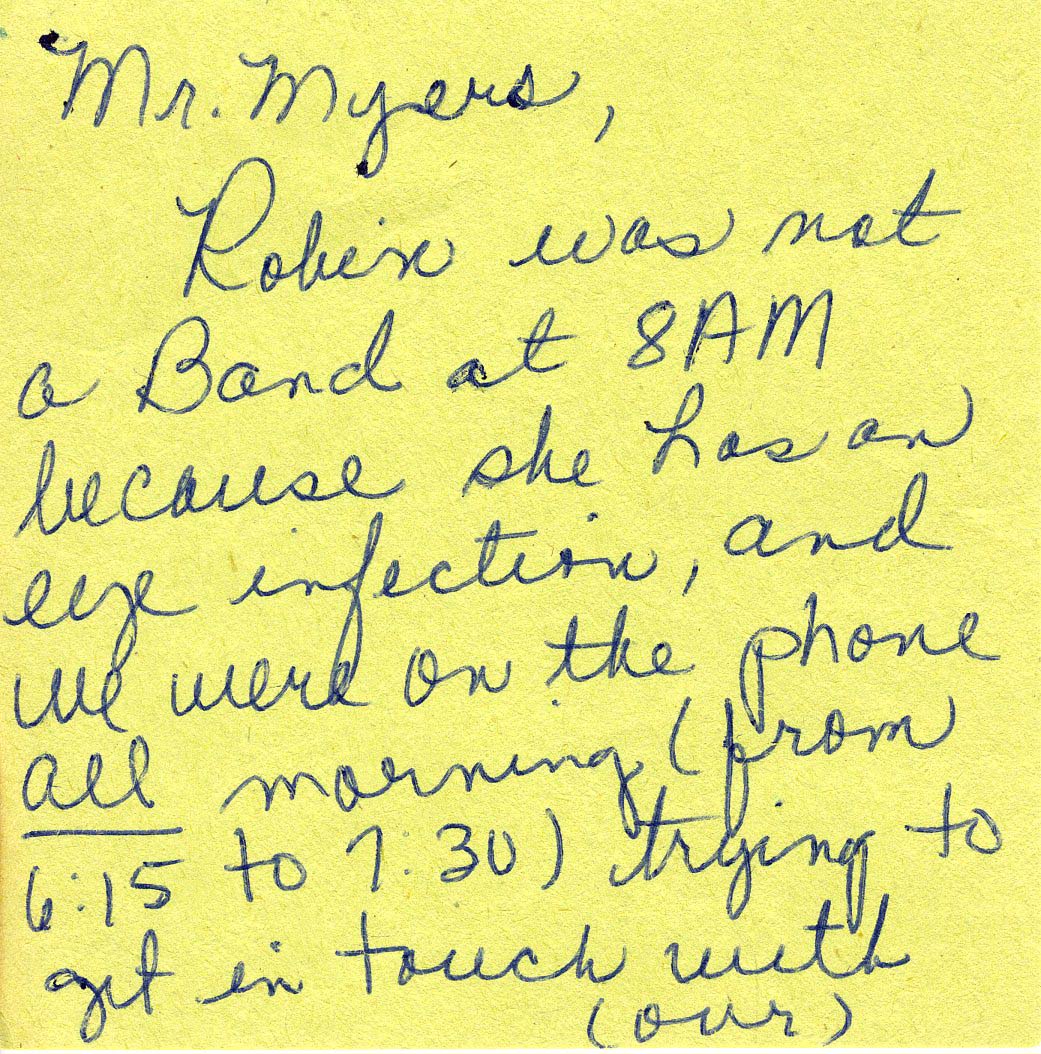 Mr. Myers,
Robin was not
a Band at 8AM
because she has an
eye infection, and
we were on the phone
all morning (from
6:15 to 7:30) trying to
get in touch with
(over)